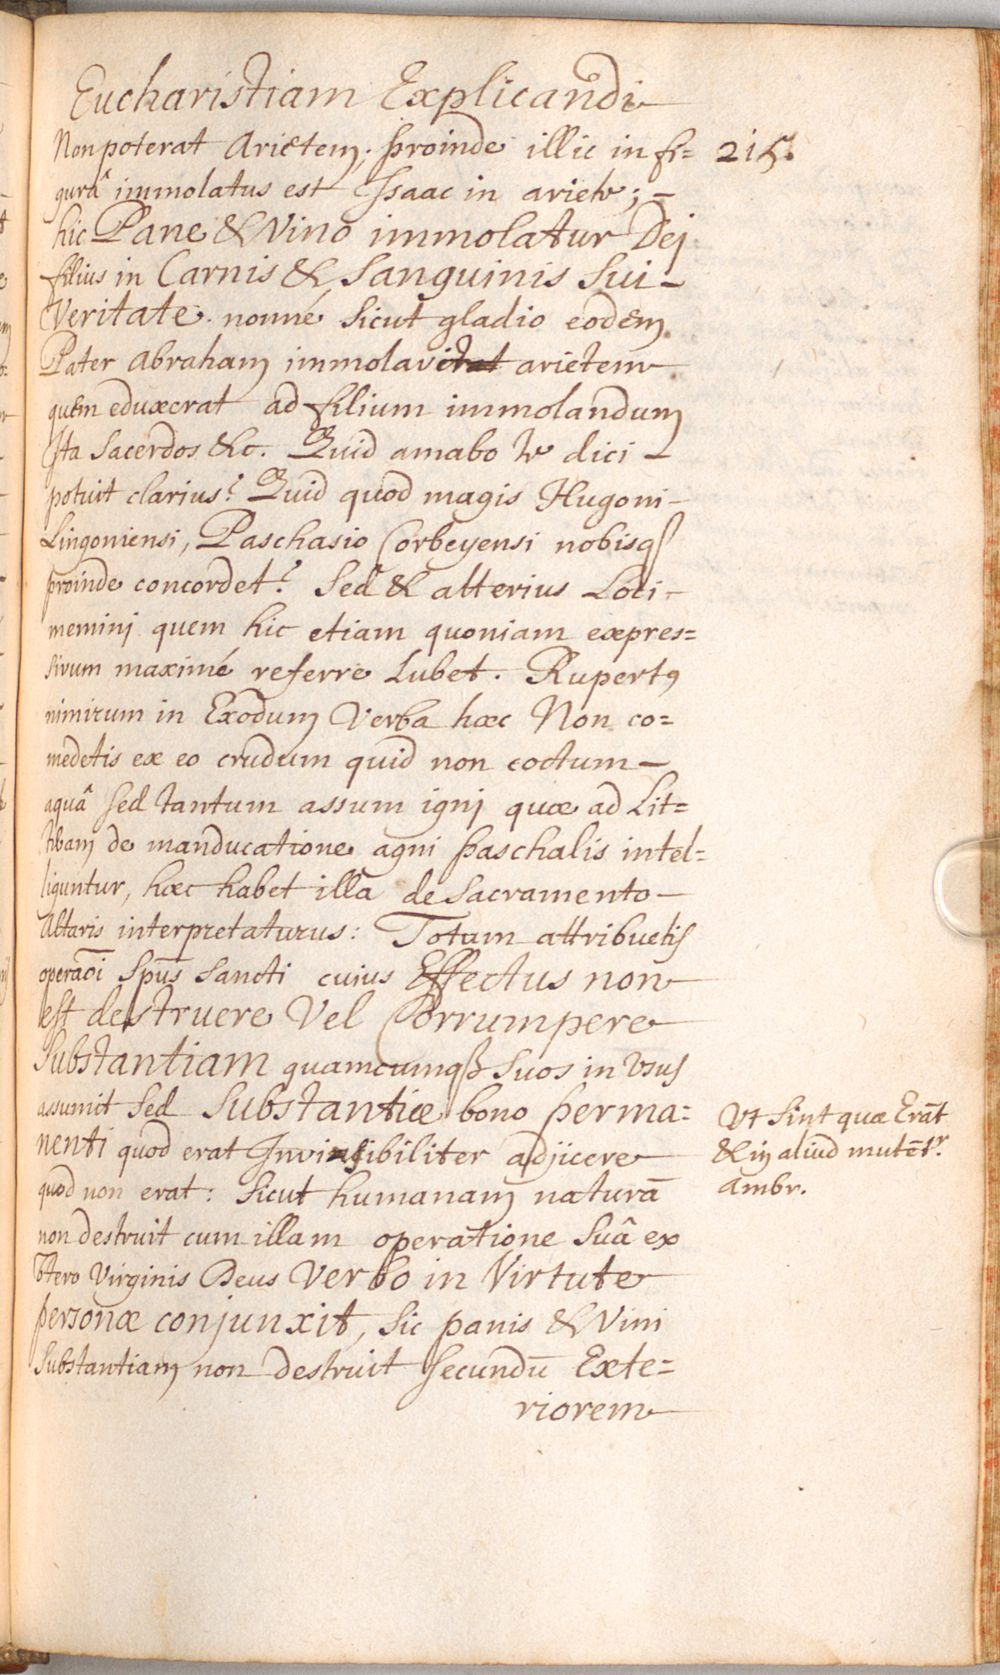 Eucharistiam Explicandi
Non poterat Arietem. proinde illic in fi=
215.
gurâ immolatus est Isaac in ariete; –
hic Pane & Vino immolatur Dej
filius in Carnis & Sanguinis Sui –
Veritate. nonné sicut gladio eodem
Pater Abraham immolavit arietem
quem eduxerat ad filium immolandum
Ita Sacerdos &c. Quid amabo te dici –
potuit clarius? Quid quod magis Hugoni –
Lingoniensi, Paschasio Corbeyensi nobisq
proinde concordet? Sed & alterius Loci –
meminj quem hic etiam quoniam expres=
sivum maximé referre Lubet. Rupertꝰ
nimirum in Exodum Verba hæc Non co=
medetis ex eo crudum quid non coctum –
aquâ sed tantum assum ignj quæ ad Lit=
teram de manducatione agni paschalis intel=
liguntur, hæc habet illa de Sacramento –
Altaris interpretaturus: Totum attribuetis
operãoi Spũs Sancti cuius Effectus non
est destruere Vel Corrumpere
Substantiam quamcumqꝫ Suos in Usus
assumit Sed Substantiæ bono perma=
nenti quod erat Invisibiliter adjicere
quod non erat: Sicut humanam naturã
non destruit cum illam operatione Suâ ex
Utero Virginis Deus Verbo in Virtute
personæ conjunxit, Sic panis & Vini
Substantiam non destruit Secundũ Exte=
riorem
Ut Sint quæ Erãt
& in aliud mutẽtr.
Ambr.